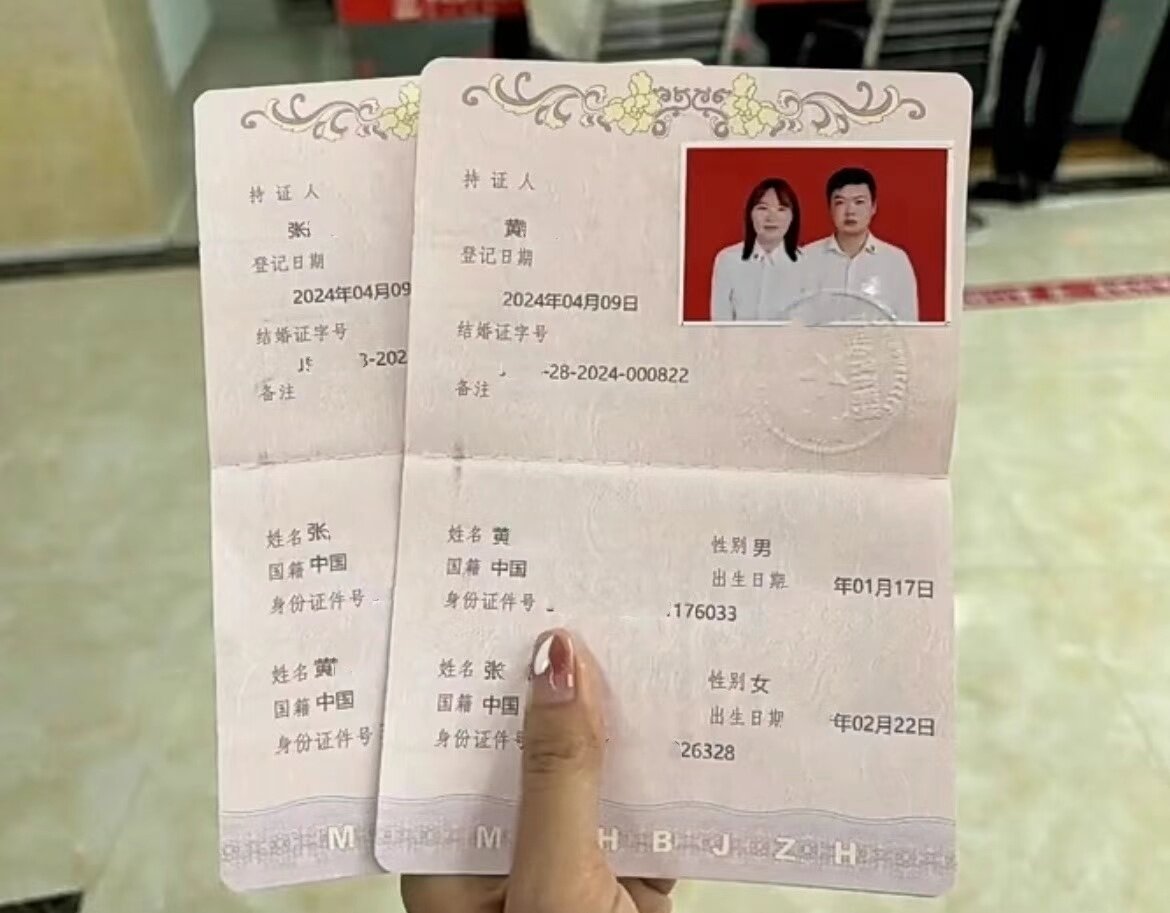 持证人
张
登记日期
2024年04月09
结婚证字号
3-202
备注
姓名 张
国籍 中国
身份证件号
姓名 黄
国籍 中国
身份证件号
M
持证人
黄
登记日期
2024年04月09日
结婚证字号
-28-2024-000822
备注
姓名 黄 性别 男
国籍 中国 出生日期 年01月17日
身份证件号 176033
姓名 张 性别 女
国籍 中国 出生日期 年02月22日
身份证件号 26328
M H B J Z H